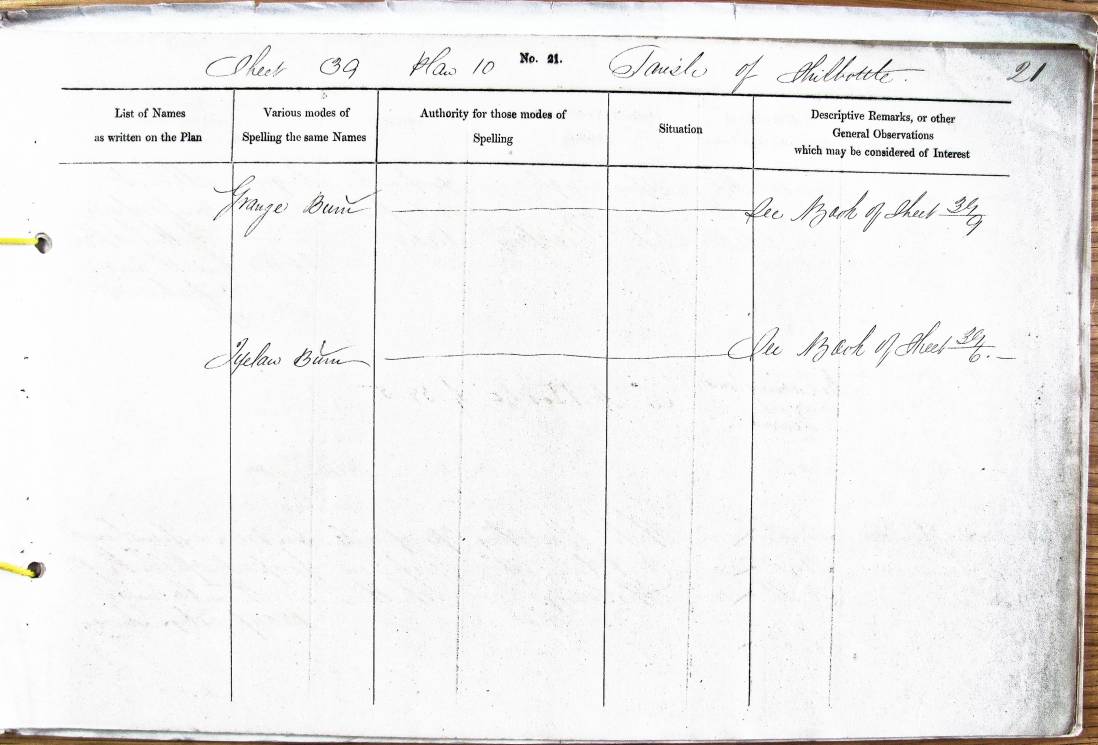 Sheet 39 Plan 10 No. 21. Parish of Shilbottle. 21
List of Names
as written on the Plan
Various modes of
Spelling the same Names
Authority for those modes of
Spelling
Situation
Descriptive Remarks, or other
General Observations
which may be considered of Interest
Grange Burn See Book of Sheet 39/9
Tyelaw Burn See Book of Sheet 39/6.